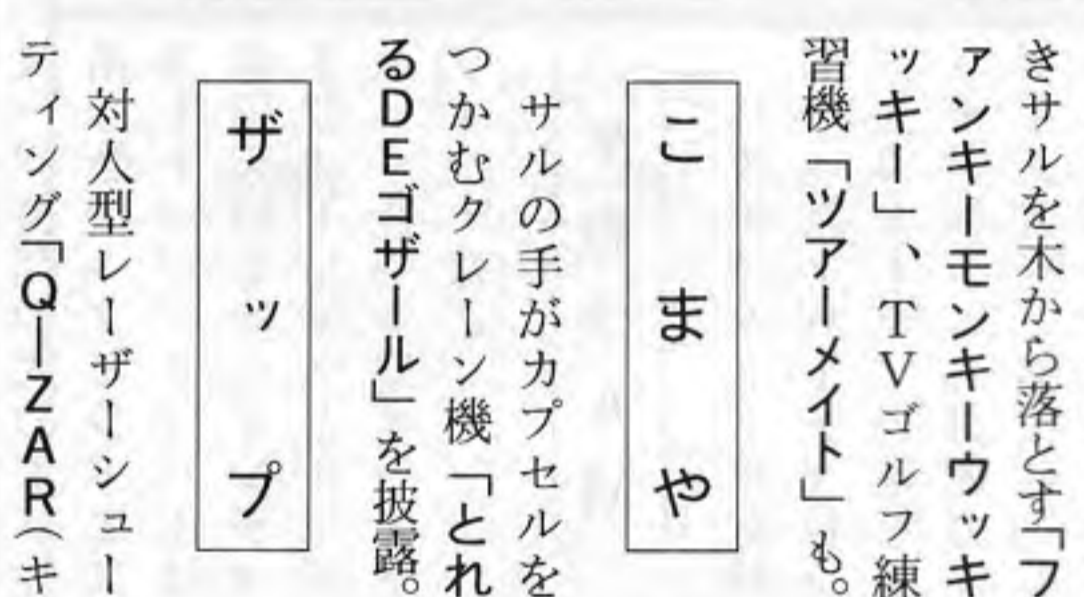 きサルを木から落とす「フ
ァンキーモンキーウッキ
ッキー」、TVゴルフ練
習機「ツアーメイト」も。
こまや
サルの手がカプセルを
つかむクレーン機「とれ
るDEゴザール」を披露。
ザップ
対人型レーザーシュー
ティング「Q―ZAR(キ